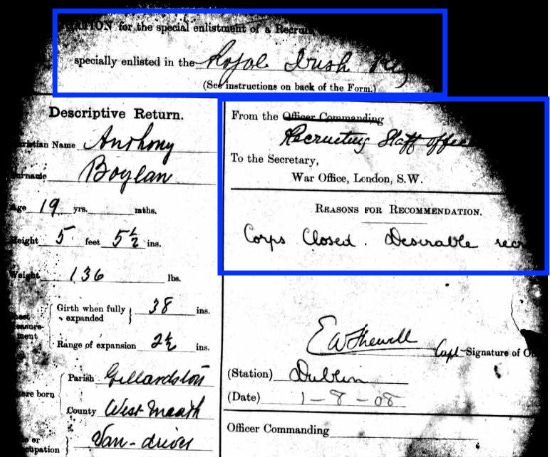 TION for the special enlistment of a Recruit
specially enlisted in the Royal Irish Reg
(See instructions on back of the Form.)
Descriptive Return.
ristian Name Anthony
urname Boylan
Age 19 yrs. mths.
Height 5 feet 5½ ins.
Weight 136 lbs.
Girth when fully expanded 38 ins.
Range of expansion 2½ ins.
Parish
County West Meath
Van-driver
From the Officer Commanding
Recruiting Staff Office
To the Secretary,
War Office, London, S.W.
REASONS FOR RECOMMENDATION.
Corps Closed. Desirable rec
Capt Signature of O
(Station) Dublin
(Date) 1-8-08
Officer Commanding